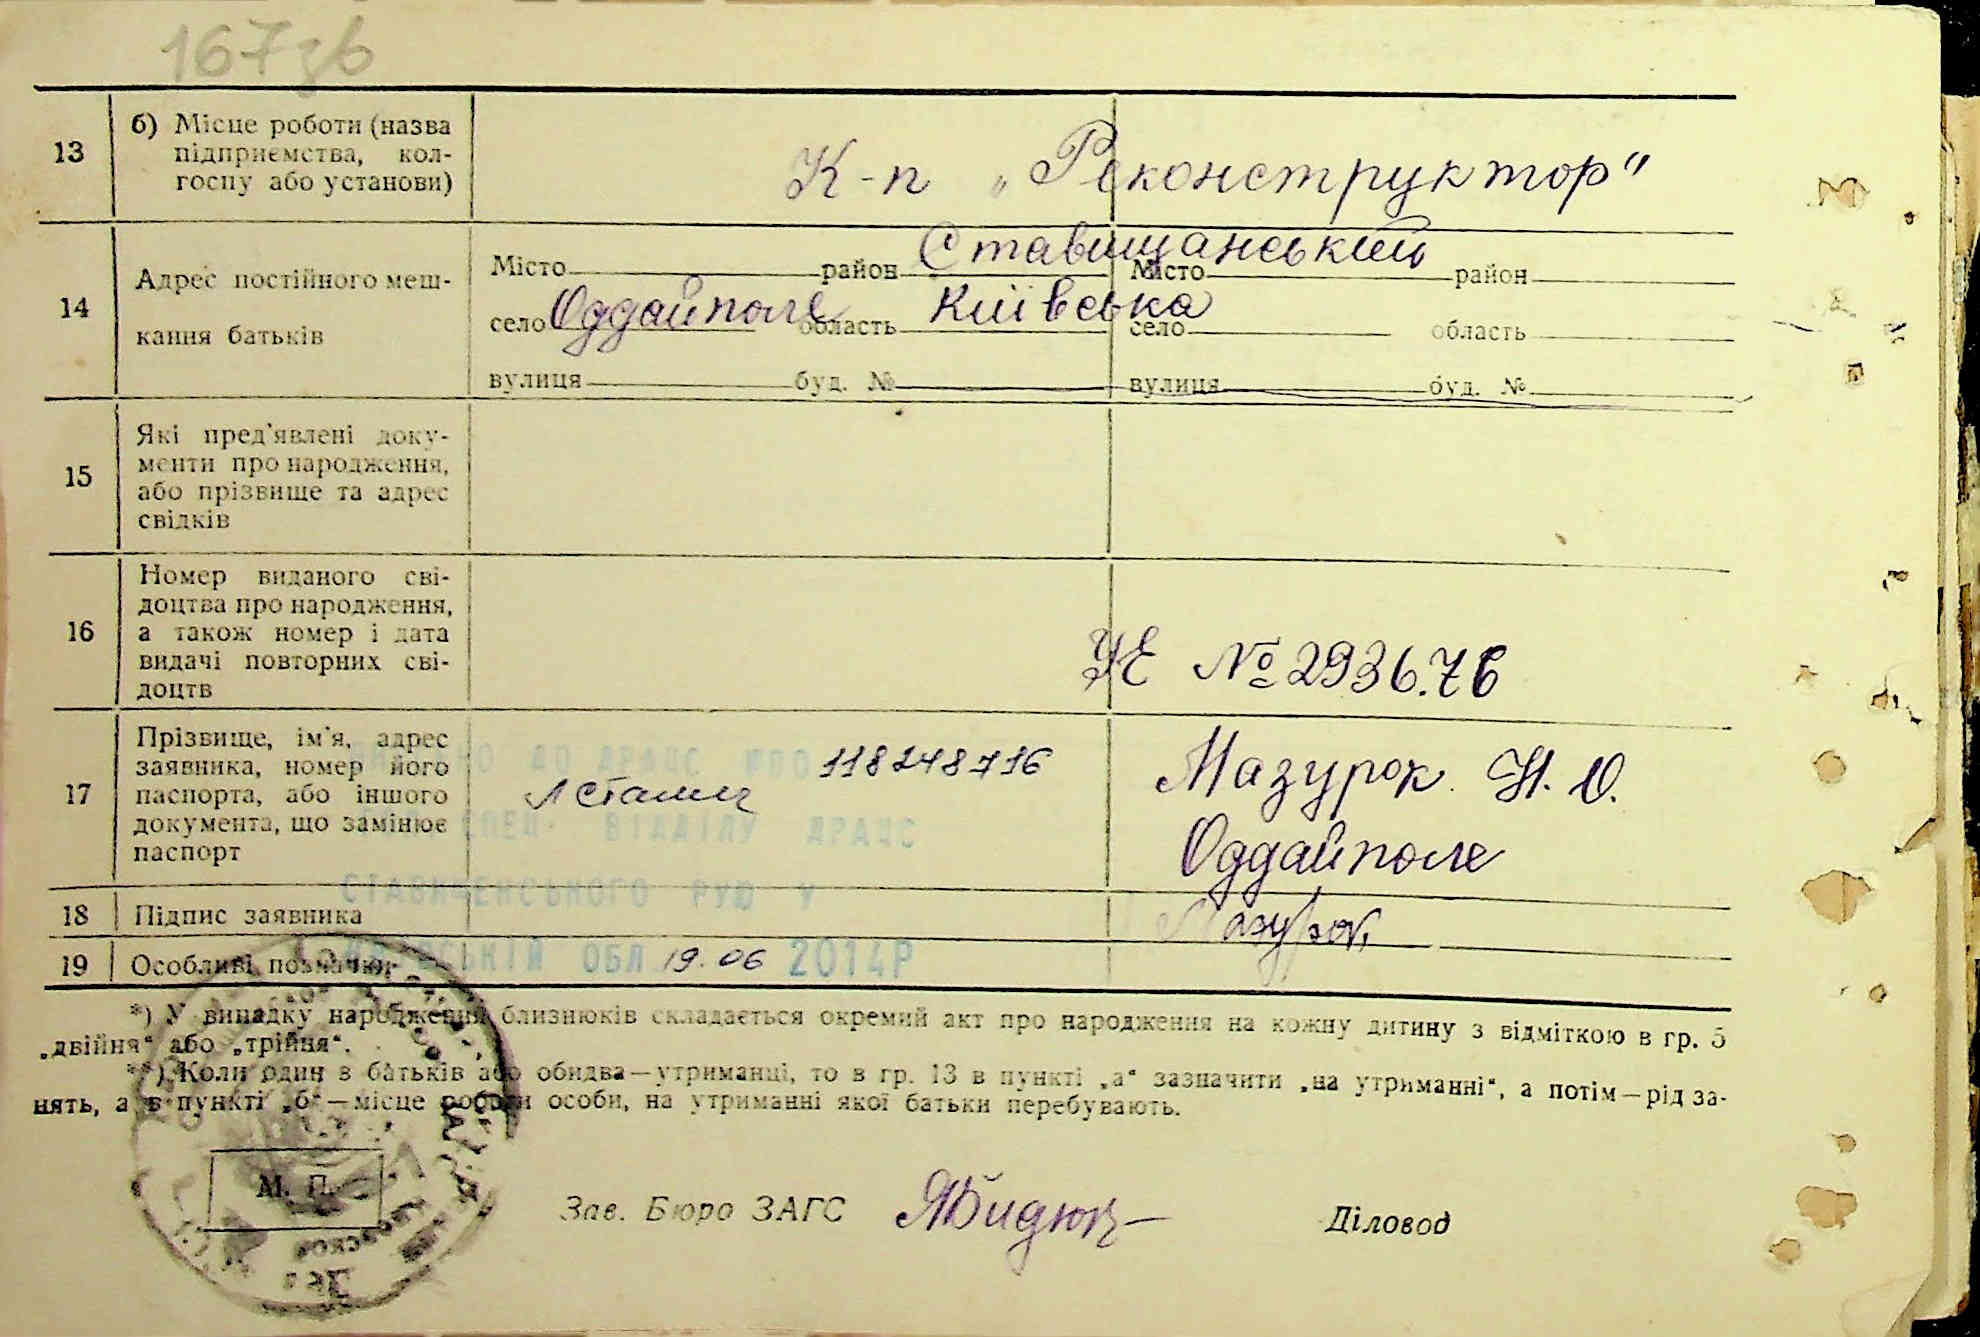 167зв
13
б) Місце роботи (назва
підприємства, кол-
госпу або установи)
К-п „Реконструктор"
14
Адрес постійного меш-
кання батьків
Місто район Ставищанський Місто район
село Оддайполе область Київська село область
вулиця буд. № вулиця буд. №
15
Які пред'явлені доку-
менти про народження,
або прізвище та адрес
свідків
16
Номер виданого сві-
доцтва про народження,
а також номер і дата
видачі повторних сві-
доцтв
УЕ № 293676
17
Прізвище, ім'я, адрес
заявника, номер його
паспорта, або іншого
документа, що замінює
паспорт
ДО ДРАЦС 118248716
ВІДДІЛУ ДРАЦС
СТАВИЩЕНСЬКОГО РУЮ У
Мазурок Н. О.
Оддайполе
18 Підпис заявника
Мазурок
19 Особливі позначки
КИЇВСЬКІЙ ОБЛ 19.06 2014Р
*) У випадку народження близнюків складається окремий акт про народження на кожну дитину з відміткою в гр. 5
„двійня“ або „трійня“.
**) Коли один з батьків або обидва—утриманці, то в гр. 13 в пункті „а“ зазначити „на утриманні“, а потім—рід за-
нять, а в пункті „б“—місце роботи особи, на утриманні якої батьки перебувають.
М. П.
Зав. Бюро ЗАГС
Діловод